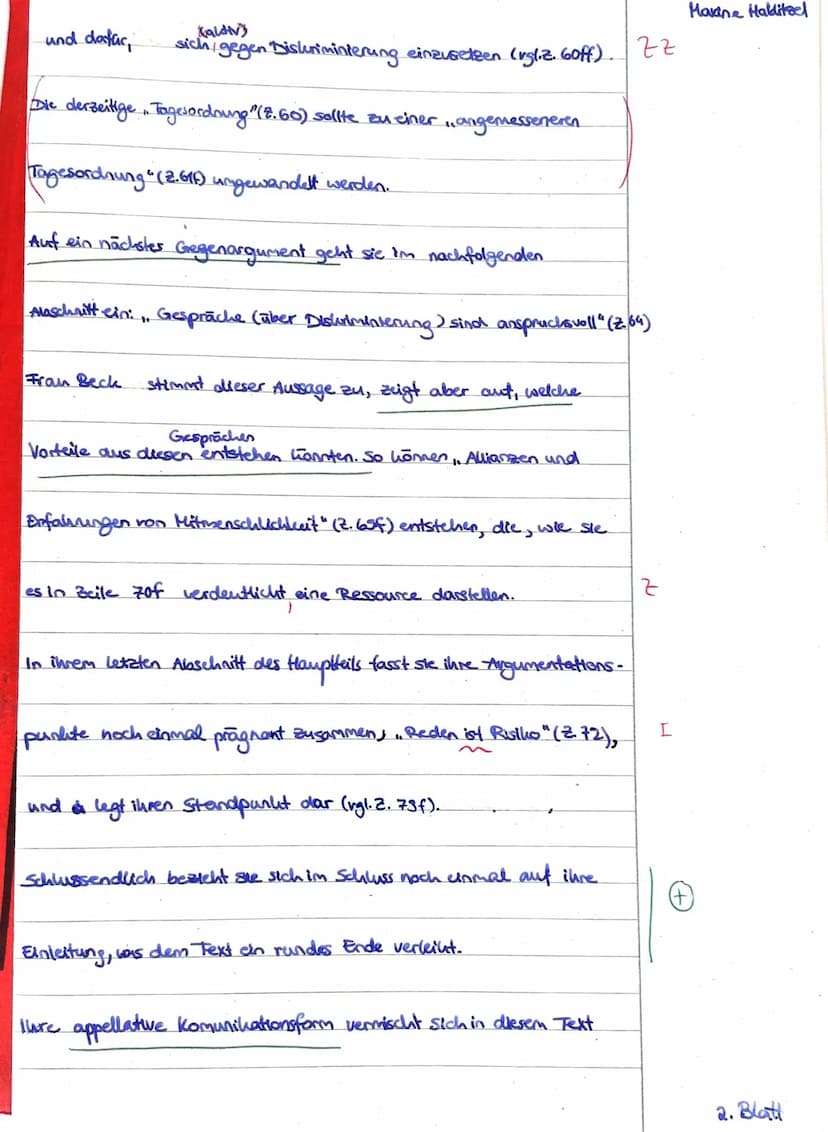 Maxine Halditzel
(aktiv)
und dafür, sich gegen Diskriminierung einzusetzen (vgl. Z. 60ff). ZZ
Die derzeitige „Tagesordnung" (Z. 60) sollte zu einer „angemesseneren
Tagesordnung" (Z. 61f) umgewandelt werden.
Auf ein nächstes Gegenargument geht sie im nachfolgenden
Abschnitt ein: „Gespräche (über Diskriminierung) sind anspruchsvoll" (Z. 64)
Frau Beck stimmt dieser Aussage zu, zeigt aber auf, welche
Gesprächen
Vorteile aus diesen entstehen könnten. So können „Allianzen und
Erfahrungen von Mitmenschlichkeit" (Z. 65f) entstehen, die, wie sie
es in Zeile 70f verdeutlicht, eine Ressource darstellen. Z
In ihrem letzten Abschnitt des Hauptteils fasst sie ihre Argumentations-
punkte noch einmal prägnant zusammen, „Reden ist Risiko" (Z. 72), I
und legt ihren Standpunkt dar (vgl. Z. 73f).
Schlussendlich bezieht sie sich im Schluss noch einmal auf ihre
+
Einleitung, was dem Text ein rundes Ende verleiht.
Ihre appellative Komunikationsform vermischt sich in diesem Text
2. Blatt